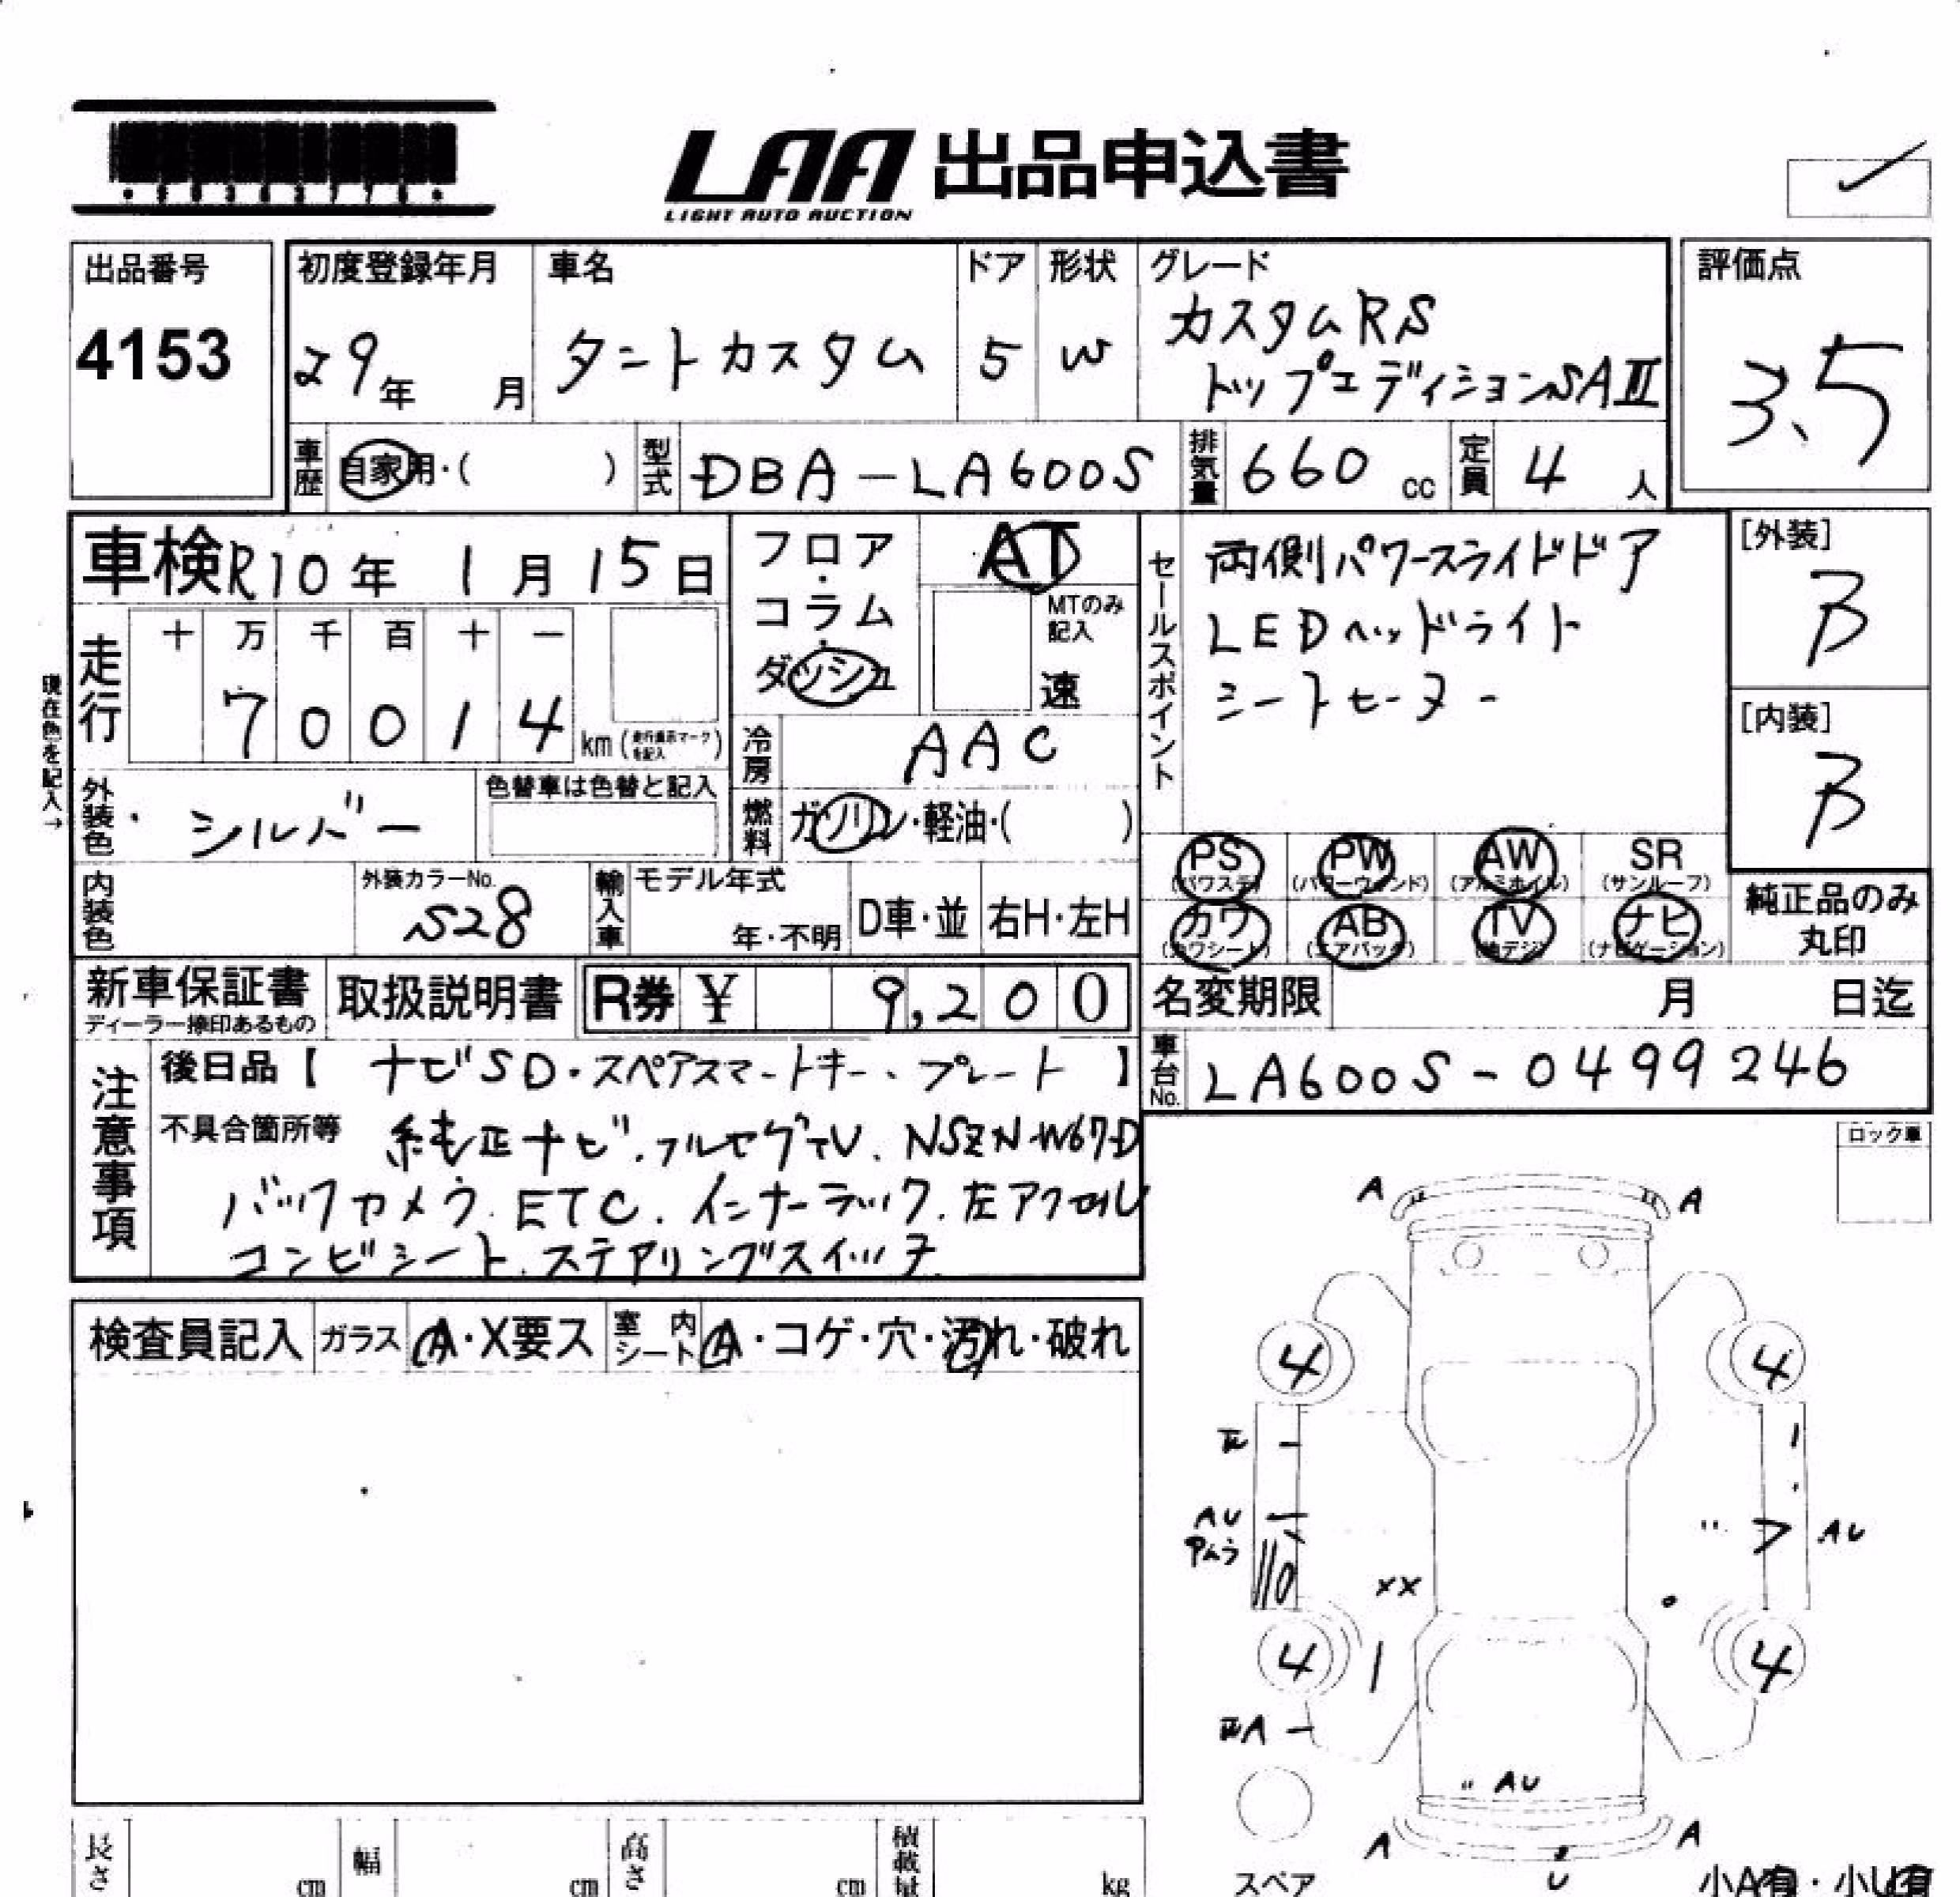 LAA 出品申込書
LIGHT AUTO AUCTION
出品番号
4153
初度登録年月
29年 月
車名
タントカスタム
ドア
5
形状
W
グレード
カスタムRS
トップエディションSAⅡ
評価点
3.5
車歴 自家用・( )
型式 DBA-LA600S
排気量 660 cc
定員 4 人
車検 R10年 1月 15日
フロア・コラム・ダッシュ
AT
MTのみ記入
速
セールスポイント
両側パワースライドドア
LEDヘッドライト
シートヒーター
[外装]
B
[内装]
B
現在色を記入→
走行
十 万 千 百 十 一
7 0 0 1 4 km (走行メーター表示マークを記入)
冷房 AAC
燃料 ガソリン・軽油・( )
外装色 シルバー
色替車は色替と記入
内装色
外装カラーNo.
S28
輸入車
モデル年式
年・不明
D車・並
右H・左H
PS (パワステ) PW (パワーウィンド) AW (アルミホイル) SR (サンルーフ)
カワ (カワシート) AB (エアバック) TV (地デジ) ナビ (ナビゲーション)
純正品のみ丸印
新車保証書
ディーラー捺印あるもの
取扱説明書
R券 ¥ 9,200
名変期限 月 日迄
車台No. LA600S-0499246
注意事項
後日品【 ナビSD・スペアスマートキー、プレート 】
不具合箇所等 純正ナビ.フルセグTV.NSZN-W67D
バックカメラ.ETC.インナーラック.左アクセル
コンビシート.ステアリングスイッチ
ロック車
検査員記入 ガラス A・X要ス 室内シート A・コゲ・穴・汚れ・破れ
A A
4 4
AU
AU
XX
4 4
AU
A A
U
スペア
小A有・小U有
長さ cm 幅 cm 高さ cm 積載量 kg